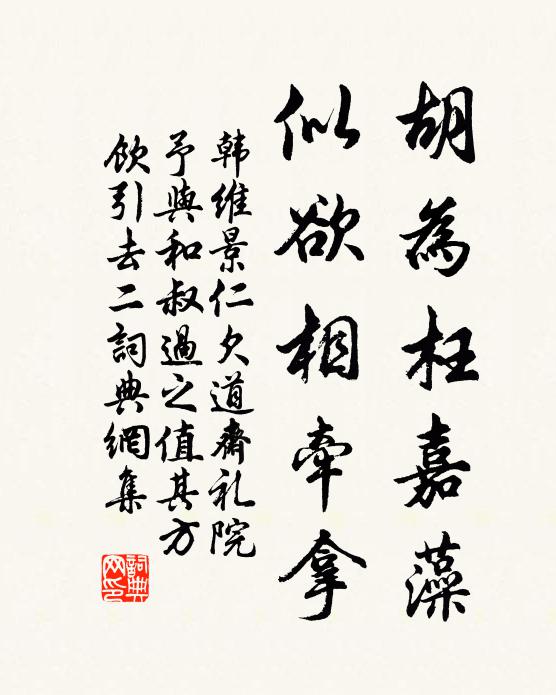 胡為枉嘉藻
似欲相牽拿
韩維景仁夕道齋礼院
予與和叔過之值其方
飲引去二詞典網集
詞典
网印